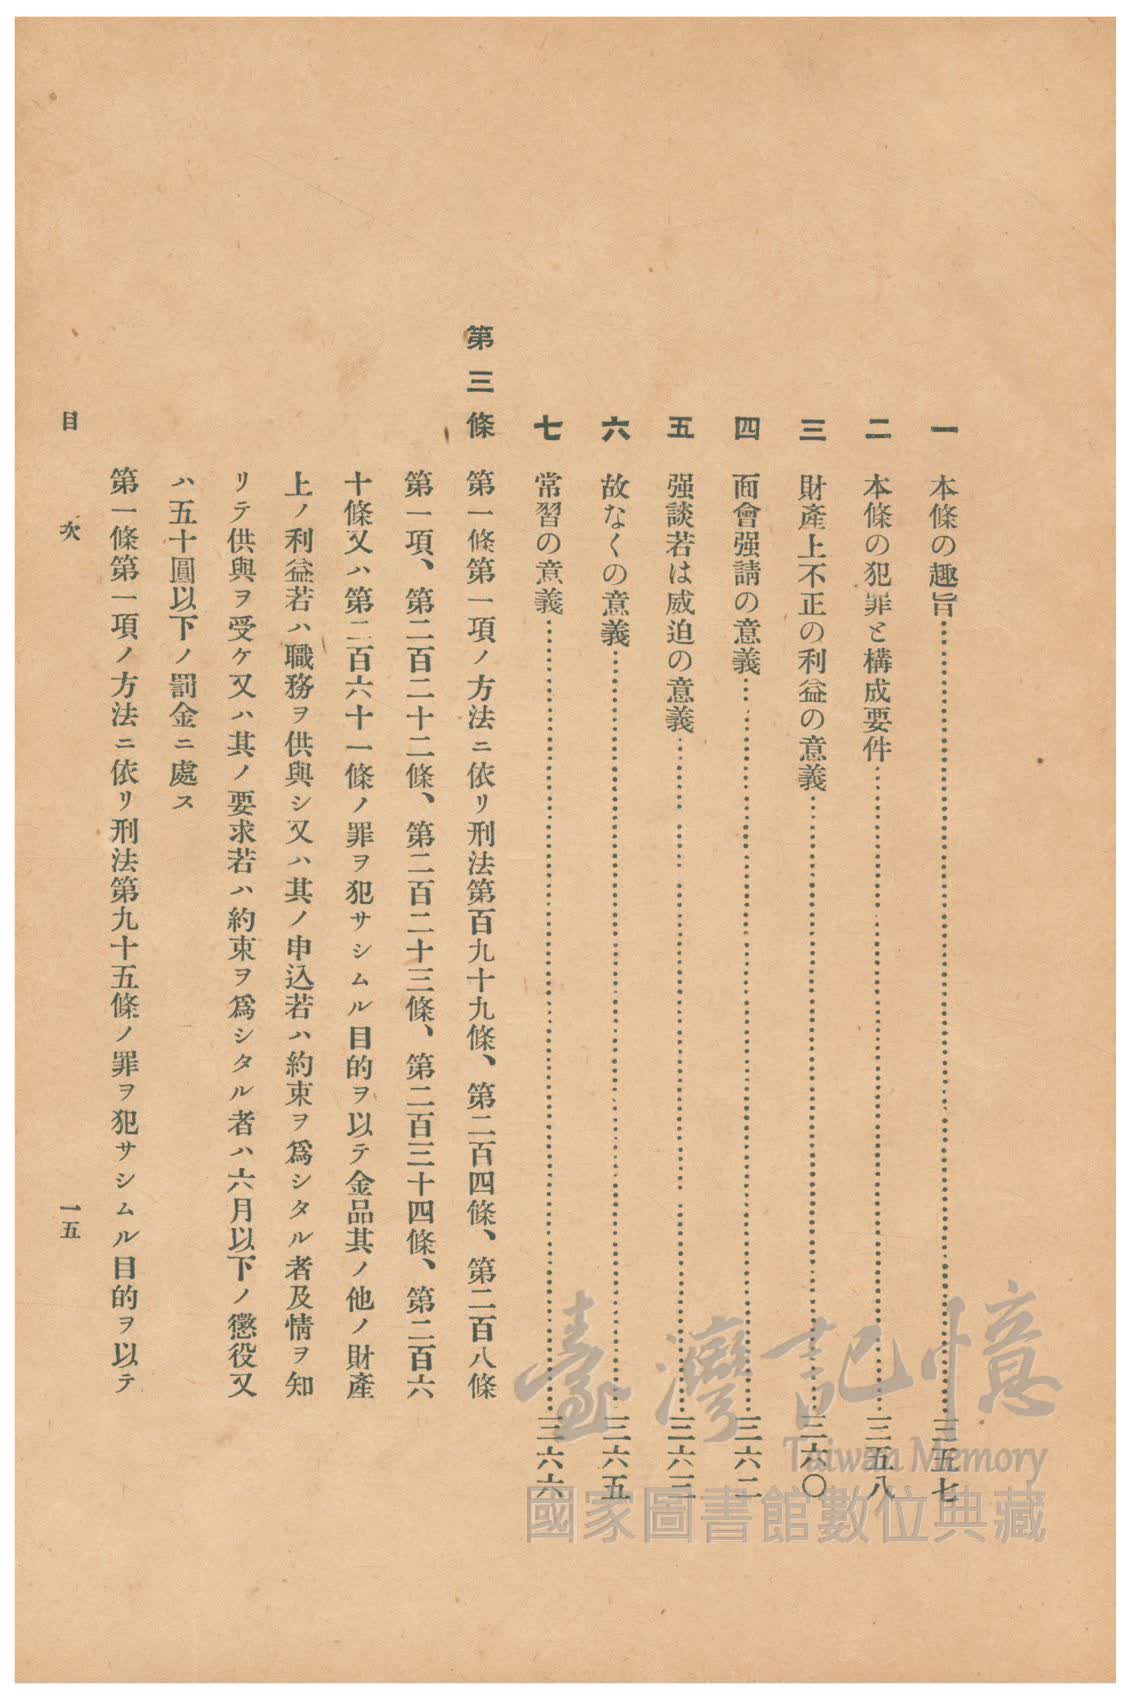 一　本條の趣旨……………………三五七
二　本條の犯罪と構成要件……………………三五八
三　財產上不正の利益の意義……………………三六〇
四　面會强請の意義……………………三六二
五　强談若は威迫の意義……………………三六三
六　故なくの意義……………………三六五
七　常習の意義……………………三六六
第三條　第一條第一項ノ方法ニ依リ刑法第百九十九條、第二百四條、第二百八條
第一項、第二百二十二條、第二百二十三條、第二百三十四條、第二百六
十條又ハ第二百六十一條ノ罪ヲ犯サシムル目的ヲ以テ金品其ノ他ノ財產
上ノ利益若ハ職務ヲ供與シ又ハ其ノ申込若ハ約束ヲ爲シタル者及情ヲ知
リテ供與ヲ受ケ又ハ其ノ要求若ハ約束ヲ爲シタル者ハ六月以下ノ懲役又
ハ五十圓以下ノ罰金ニ處ス
第一條第一項ノ方法ニ依リ刑法第九十五條ノ罪ヲ犯サシムル目的ヲ以テ
目次　一五
臺灣記憶
Taiwan Memory
國家圖書館數位典藏